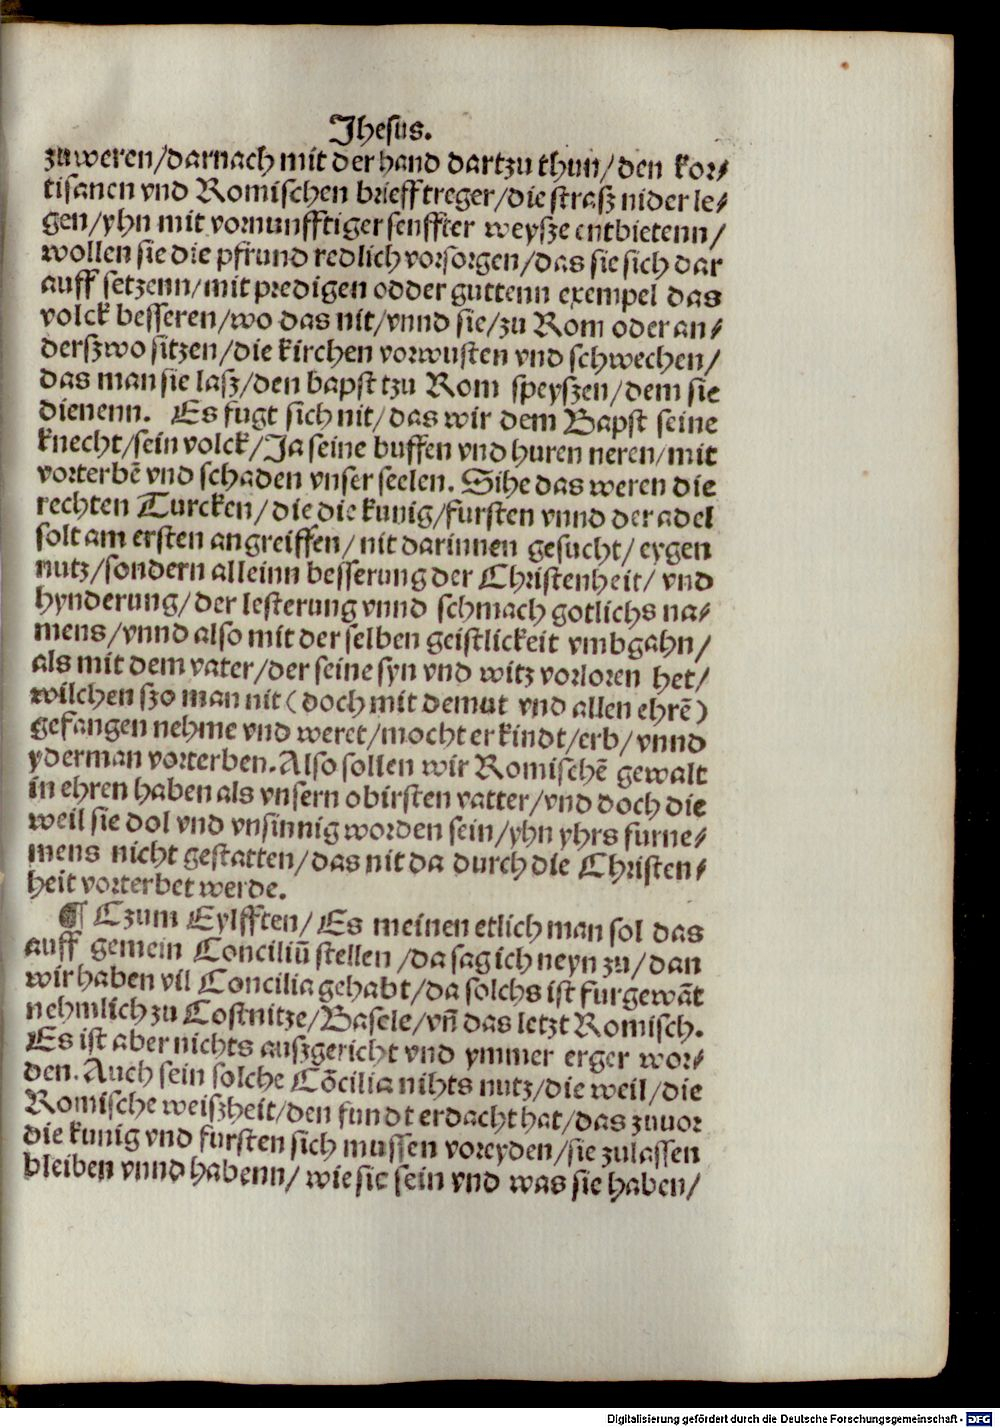 Jhesus.
zuweren/darnach mit der hand dartzu thun/den kor⸗
tisanen vnd Romischen briefftreger/die straſz nider le⸗
gen/yhn mit vornunfftiger senffter weyſze entbietenn/
wollen sie die pfrund redlich vorsorgen/das sie sich dar
auff setzenn/mit predigen odder guttenn exempel das
volck besseren/wo das nit/vnnd sie/zu Rom oder an⸗
derſzwo sitzen/die kirchen vorwusten vnd schwechen/
das man sie laſz/den bapst tzu Rom speyſzen/dem sie
dienenn. Es fugt sich nit/das wir dem Bapst seine
knecht/sein volck/Ja seine buffen vnd huren neren/mit
vorterbē vnd schaden vnser seelen. Sihe das weren die
rechten Turcken/die die kunig/fursten vnnd der adel
solt am ersten angreiffen/nit darinnen gesucht/eygen
nutz/sondern alleinn besserung der Christenheit/vnd
hynderung/der lesterung vnnd schmach gotlichs na⸗
mens/vnnd also mit der selben geistlickeit vmbgahn/
als mit dem vater/der seine syn vnd witz vorloren het/
wilchen ſzo man nit (doch mit demut vnd allen ehrē)
gefangen nehme vnd weret/mocht er kindt/erb/vnnd
yderman vorterben.Also sollen wir Romischē gewalt
in ehren haben als vnsern obirsten vatter/vnd doch die
weil sie dol vnd vnsinnig worden sein/yhn yhrs furne⸗
mens nicht gestatten/das nit da durch die Christen⸗
heit vorterbet werde.
¶ Czum Eylfften/Es meinen etlich man sol das
auff gemein Conciliū stellen/da sag ich neyn zu/dan
wir haben vil Concilia gehabt/da solchs ist furgewāt
nehmlich zu Costnitze/Basele/vñ das letzt Romisch.
Es ist aber nichts auſzgericht vnd ymmer erger wor⸗
den.Auch sein solche Cōcilia nihts nutz/die weil/die
Romische weiſzheit/den fundt erdacht hat/das zuuor
die kunig vnd fursten sich mussen voreyden/sie zulassen
bleiben vnnd habenn/wie sie sein vnd was sie haben/
Digitalisierung gefördert durch die Deutsche Forschungsgemeinschaft - DFG